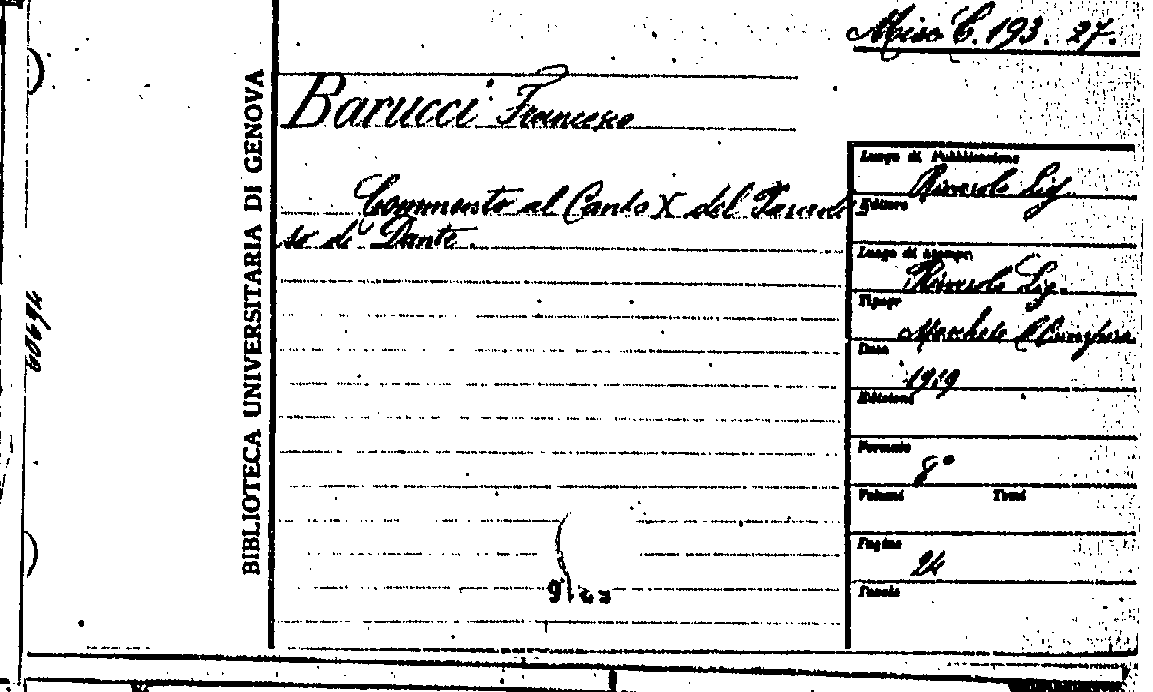 Misc C. 193. 27.
BIBLIOTECA UNIVERSITARIA DI GENOVA
Barucci Francesco
Commento al Canto X del Paradi-
so di Dante.
Luogo di Pubblicazione
Rivarolo Lig.
Editore
Luogo di stampa
Rivarolo Lig.
Tipogr
Data
1919
Edizione
Formato
8°
Volumi Tomi
Pagine
24
Tavole